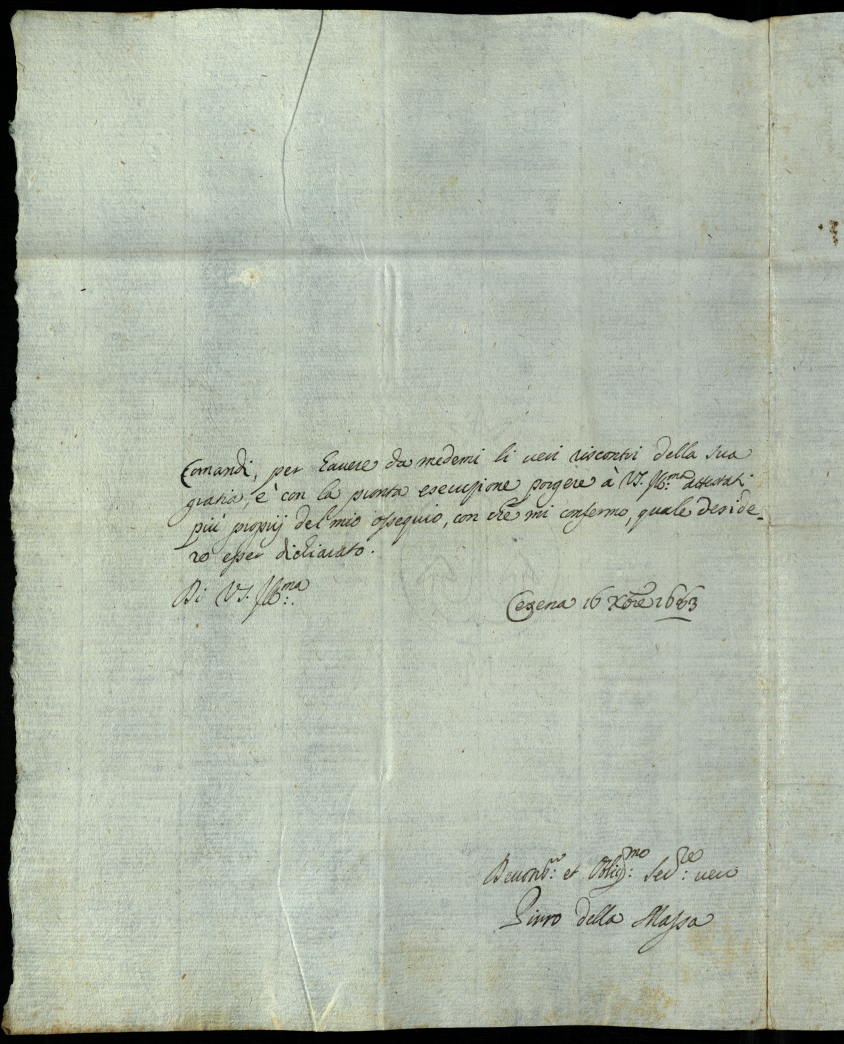 Comandi, per hauere da medemi li ueri riscontri della sua
gratia, è con la pronta esecuzione porgere à V.S. Ill:ma attestati
più proprij del mio ossequio, con che mi confermo, quale deside-
ro esser dichiarato.
Di V.S. Ill:ma
Cezena 16 Xbre 1683
et Oblig:mo Ser:re uero
Pirro della Massa